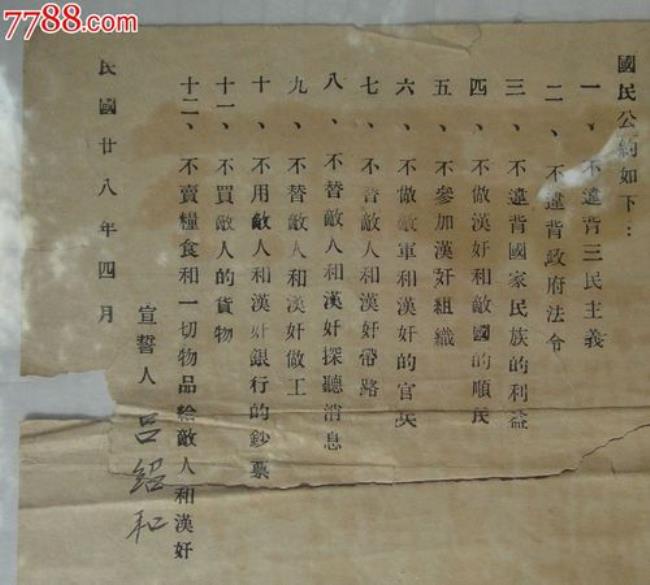 7788.com
國民公約如下：
一、不違背三民主義
二、不違背政府法令
三、不違背國家民族的利益
四、不做漢奸和敵國的順民
五、不參加漢奸組織
六、不做敵軍和漢奸的官兵
七、不替敵人和漢奸帶路
八、不替敵人和漢奸探聽消息
九、不替敵人和漢奸做工
十、不用敵人和漢奸銀行的鈔票
十一、不買敵人的貨物
十二、不賣糧食和一切物品給敵人和漢奸
宣誓人 呂紹和
民國廿八年四月